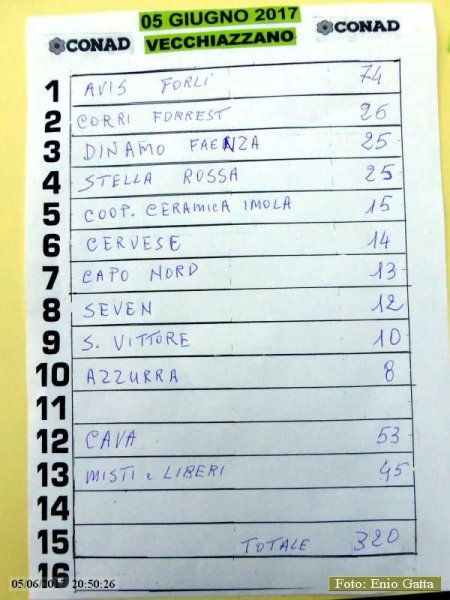 05 GIUGNO 2017
CONAD VECCHIAZZANO CONAD
1 AVIS FORLÌ 74
2 CORRI FORREST 26
3 DINAMO FAENZA 25
4 STELLA ROSSA 25
5 COOP. CERAMICA IMOLA 15
6 CERVESE 14
7 CAPO NORD 13
8 SEVEN 12
9 S. VITTORE 10
10 AZZURRA 8
11
12 CAVA 53
13 MISTI e LIBERI 45
14
15 TOTALE 320
16
05/06/2017 20:50:26 Foto: Enio Gatta